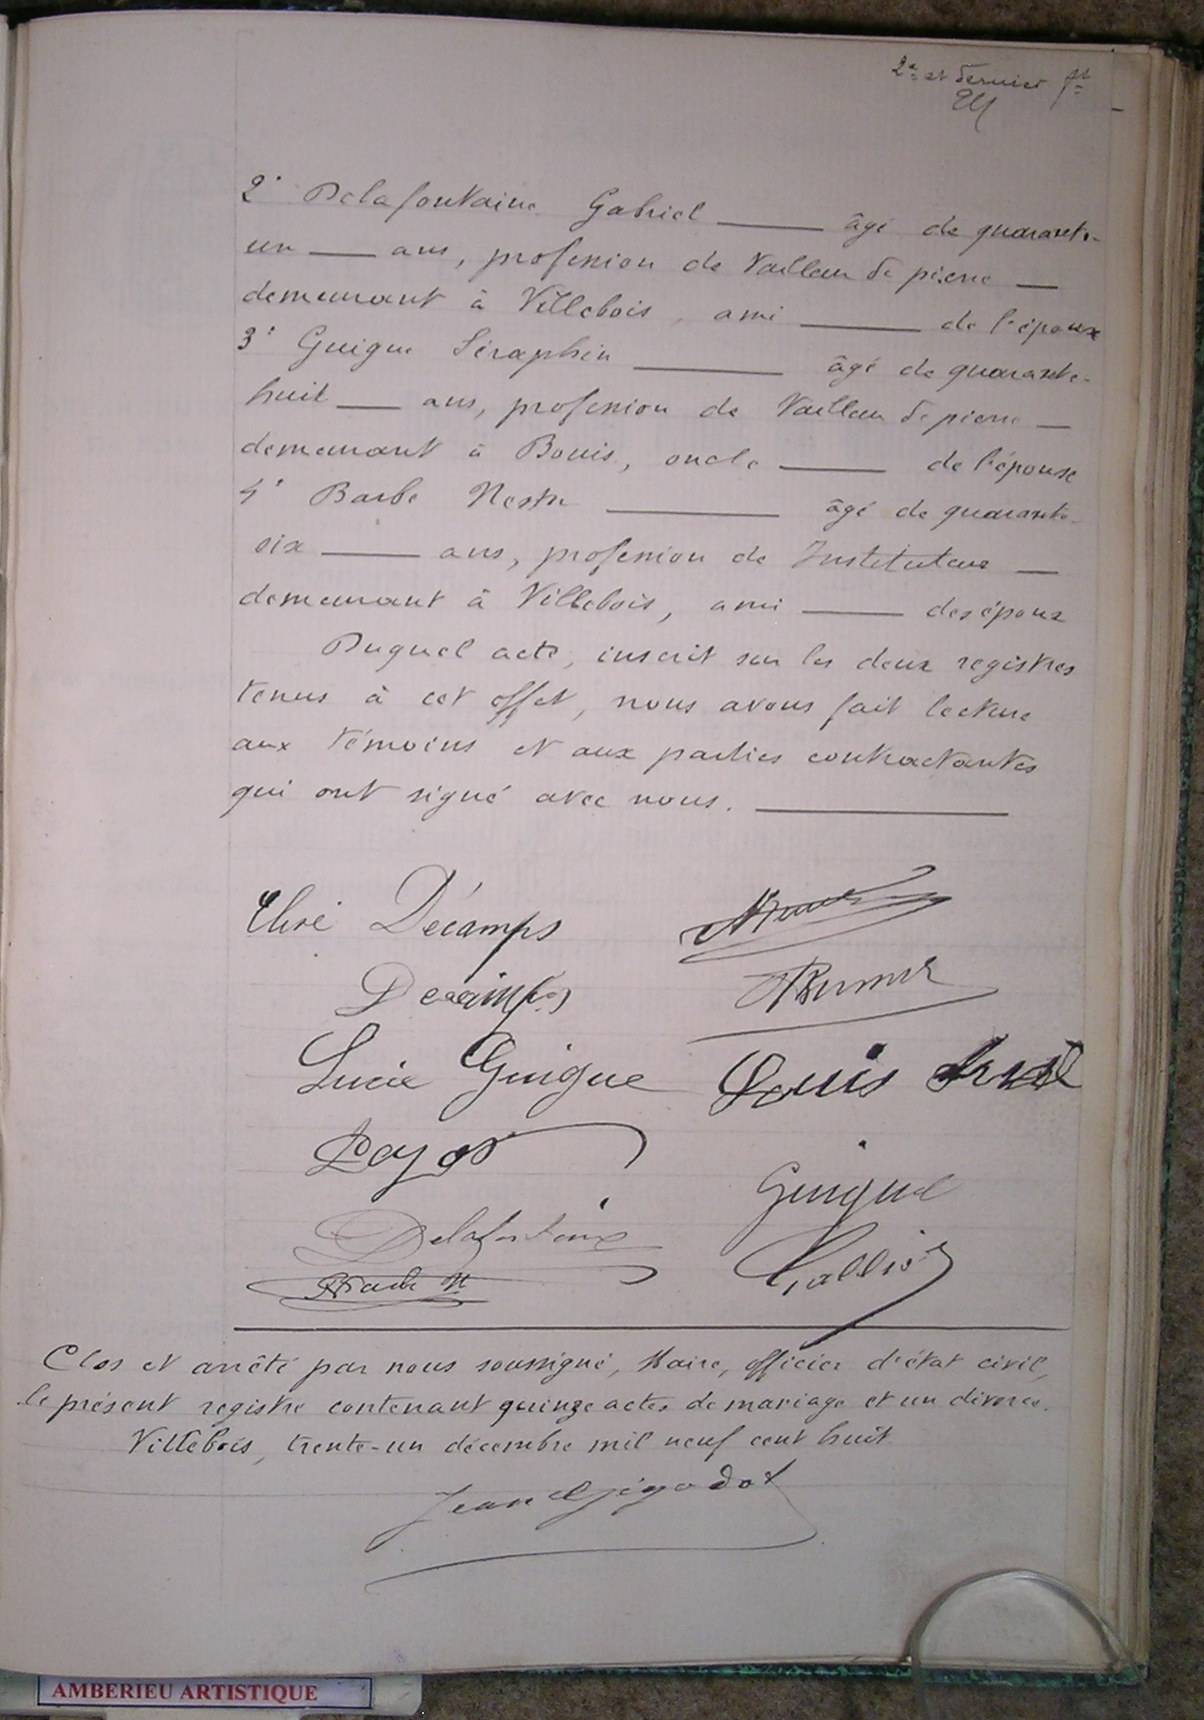 2e et dernier ft
2° Delafontaine Gabriel âgé de quarante-
un ans, profession de Tailleur de pierre
demeurant à Villebois, ami de l'époux
3° Guigue Séraphin âgé de quarante-
huit ans, profession de Tailleur de pierre
demeurant à Bouis, oncle de l'épouse
4° Barbe Nestor âgé de quarante-
six ans, profession de Instituteur
demeurant à Villebois, ami des époux
Duquel acte, inscrit sur les deux registres
tenus à cet effet, nous avons fait lecture
aux témoins et aux parties contractantes
qui ont signé avec nous.
Elisé Décamps
Decamps
Lucie Guigue Louis
Guigue
Delafontaine
Clos et arrêté par nous soussigné, Maire, officier d'état civil,
le présent registre contenant quinze actes de mariage et un divorce.
Villebois, trente-un décembre mil neuf cent huit
Jean Gigodot
AMBERIEU ARTISTIQUE